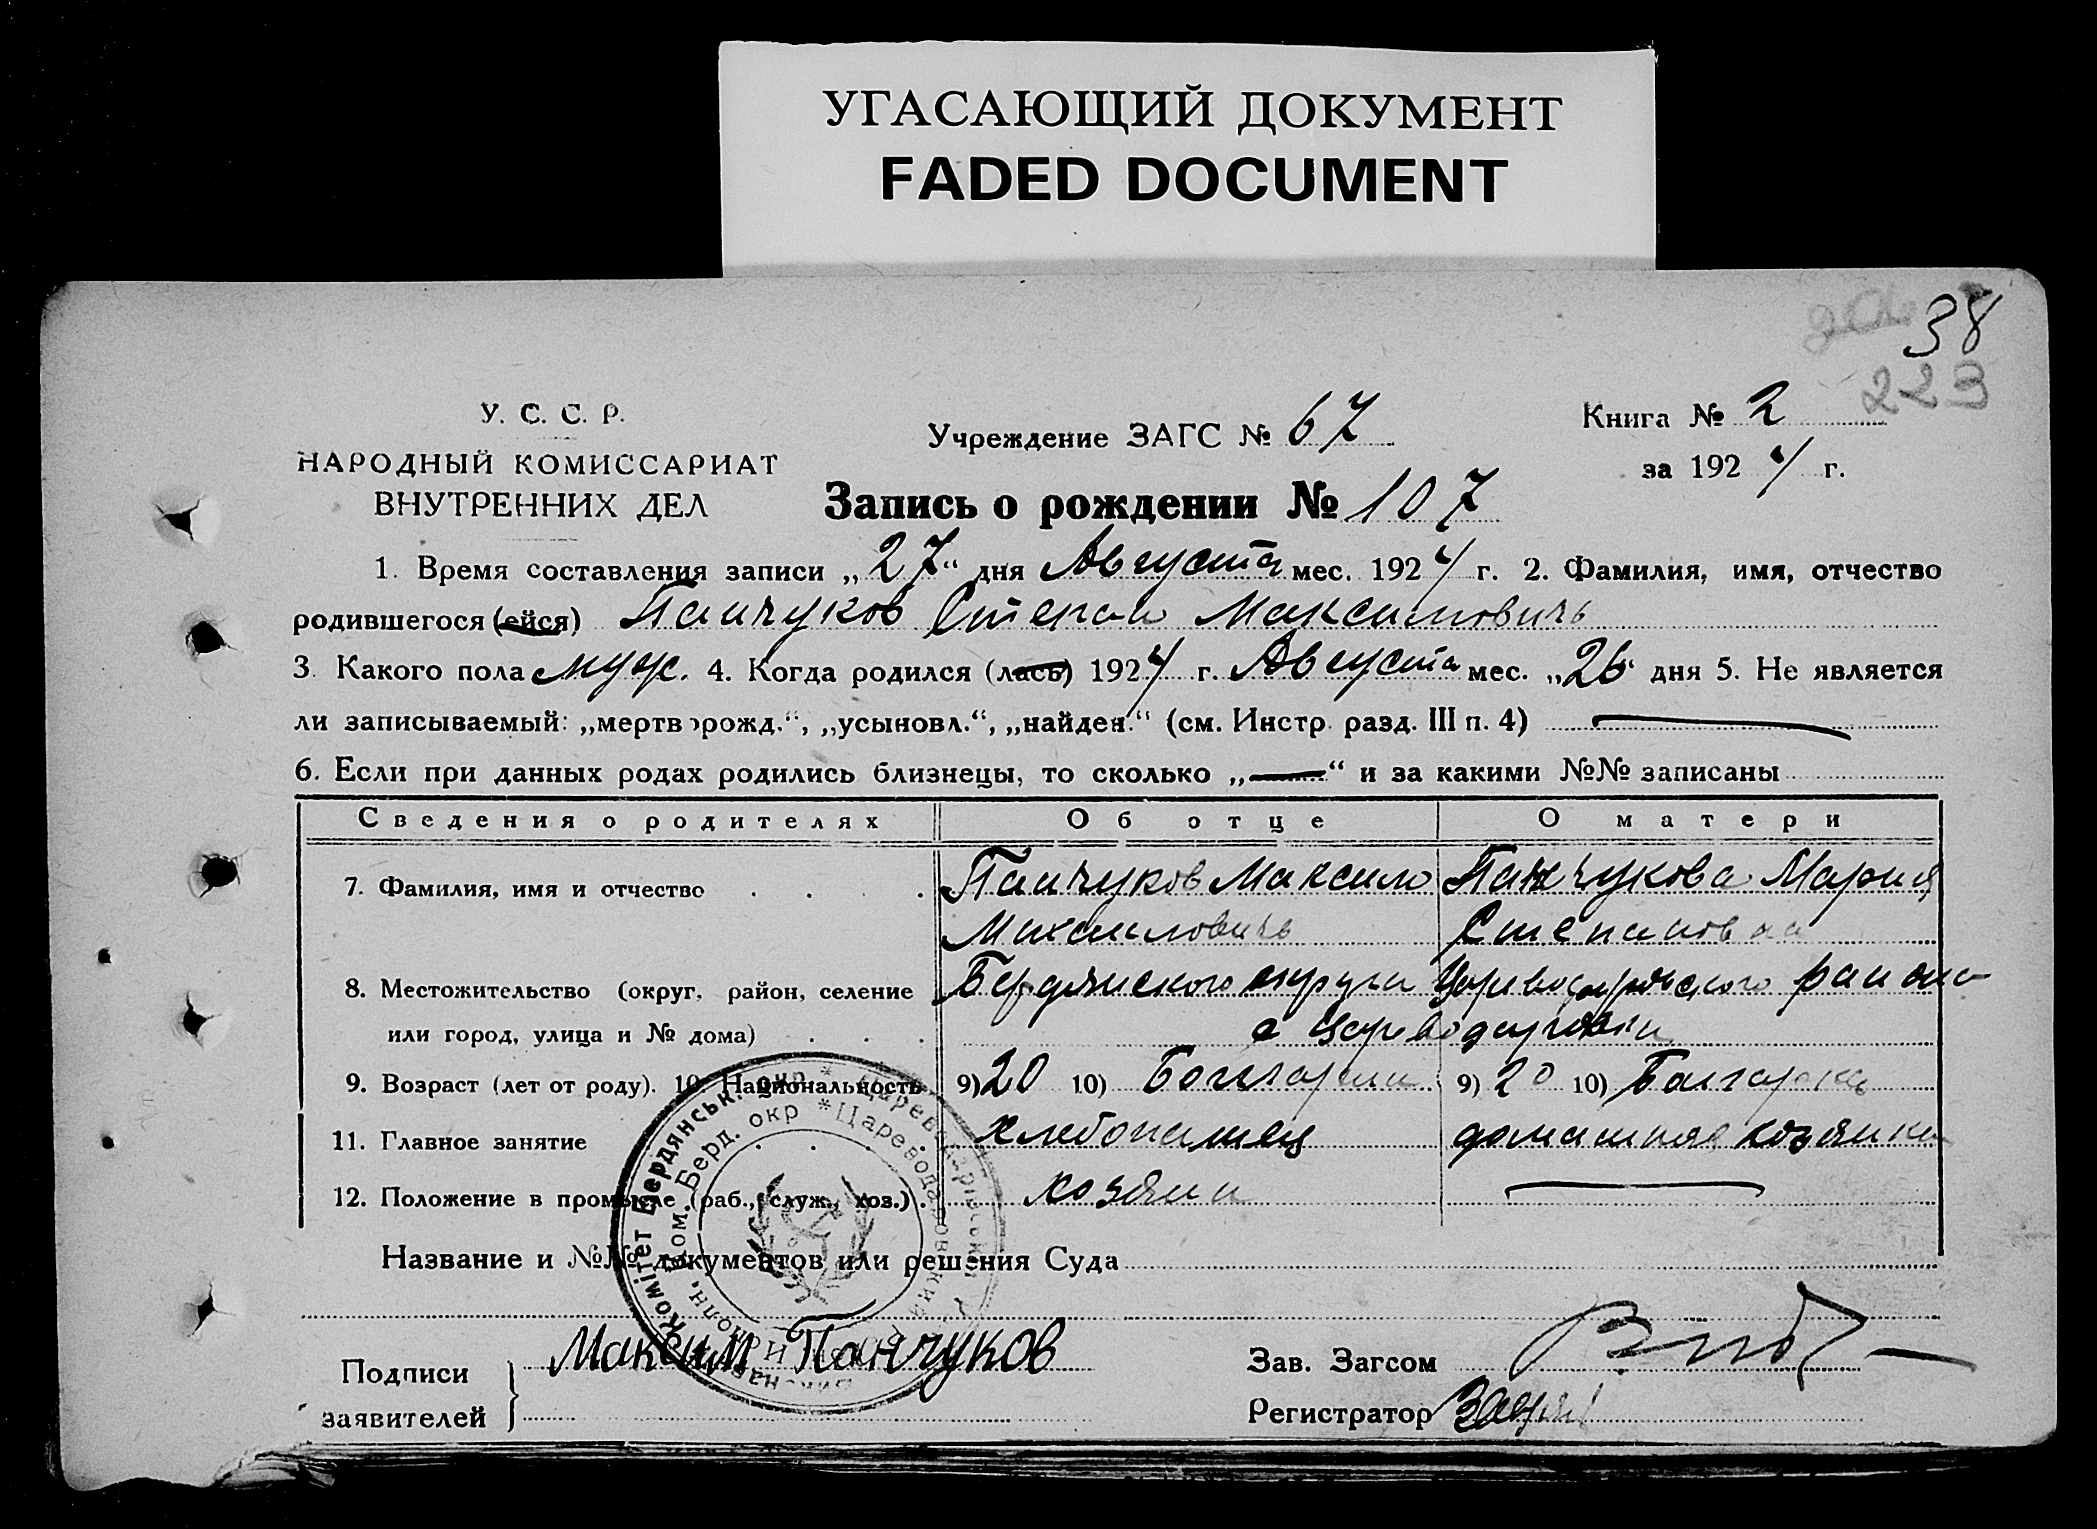 УГАСАЮЩИЙ ДОКУМЕНТ
FADED DOCUMENT
38
223
У. С. С. Р.
НАРОДНЫЙ КОМИССАРИАТ
ВНУТРЕННИХ ДЕЛ
Учреждение ЗАГС № 67
Книга № 2
за 1924 г.
Запись о рождении № 107
1. Время составления записи „27“ дня Августа мес. 1924 г. 2. Фамилия, имя, отчество
родившегося (ейся) Панчуков Степан Максимовичь
3. Какого пола муж. 4. Когда родился (лась) 1924 г. Августа мес. „26“ дня 5. Не является
ли записываемый: „мертворожд.“, „усыновл.“, „найден.“ (см. Инстр. разд. III п. 4)
6. Если при данных родах родились близнецы, то сколько „—“ и за какими №№ записаны
Сведения о родителях Об отце О матери
7. Фамилия, имя и отчество Панчуков Максим Панчукова Мария
Михаиловичь Степановна
8. Местожительство (округ, район, селение Бердянского округа Цареводаровского района
или город, улица и № дома) с Цареводаровка
9. Возраст (лет от роду). 10. Национальность 9) 20 10) Болгарин 9) 20 10) Балгарка
11. Главное занятие хлебопашец домашняя хозяйка
12. Положение в промысле (раб., служ., хоз.) хозяин
Название и №№ документов или решения Суда
Подписи
заявителей
Максим Панчуков
Зав. Загсом
Регистратор
Комітет Бердянськ. окр *
Исполн. Ком. Берд. окр * Цареводаровский